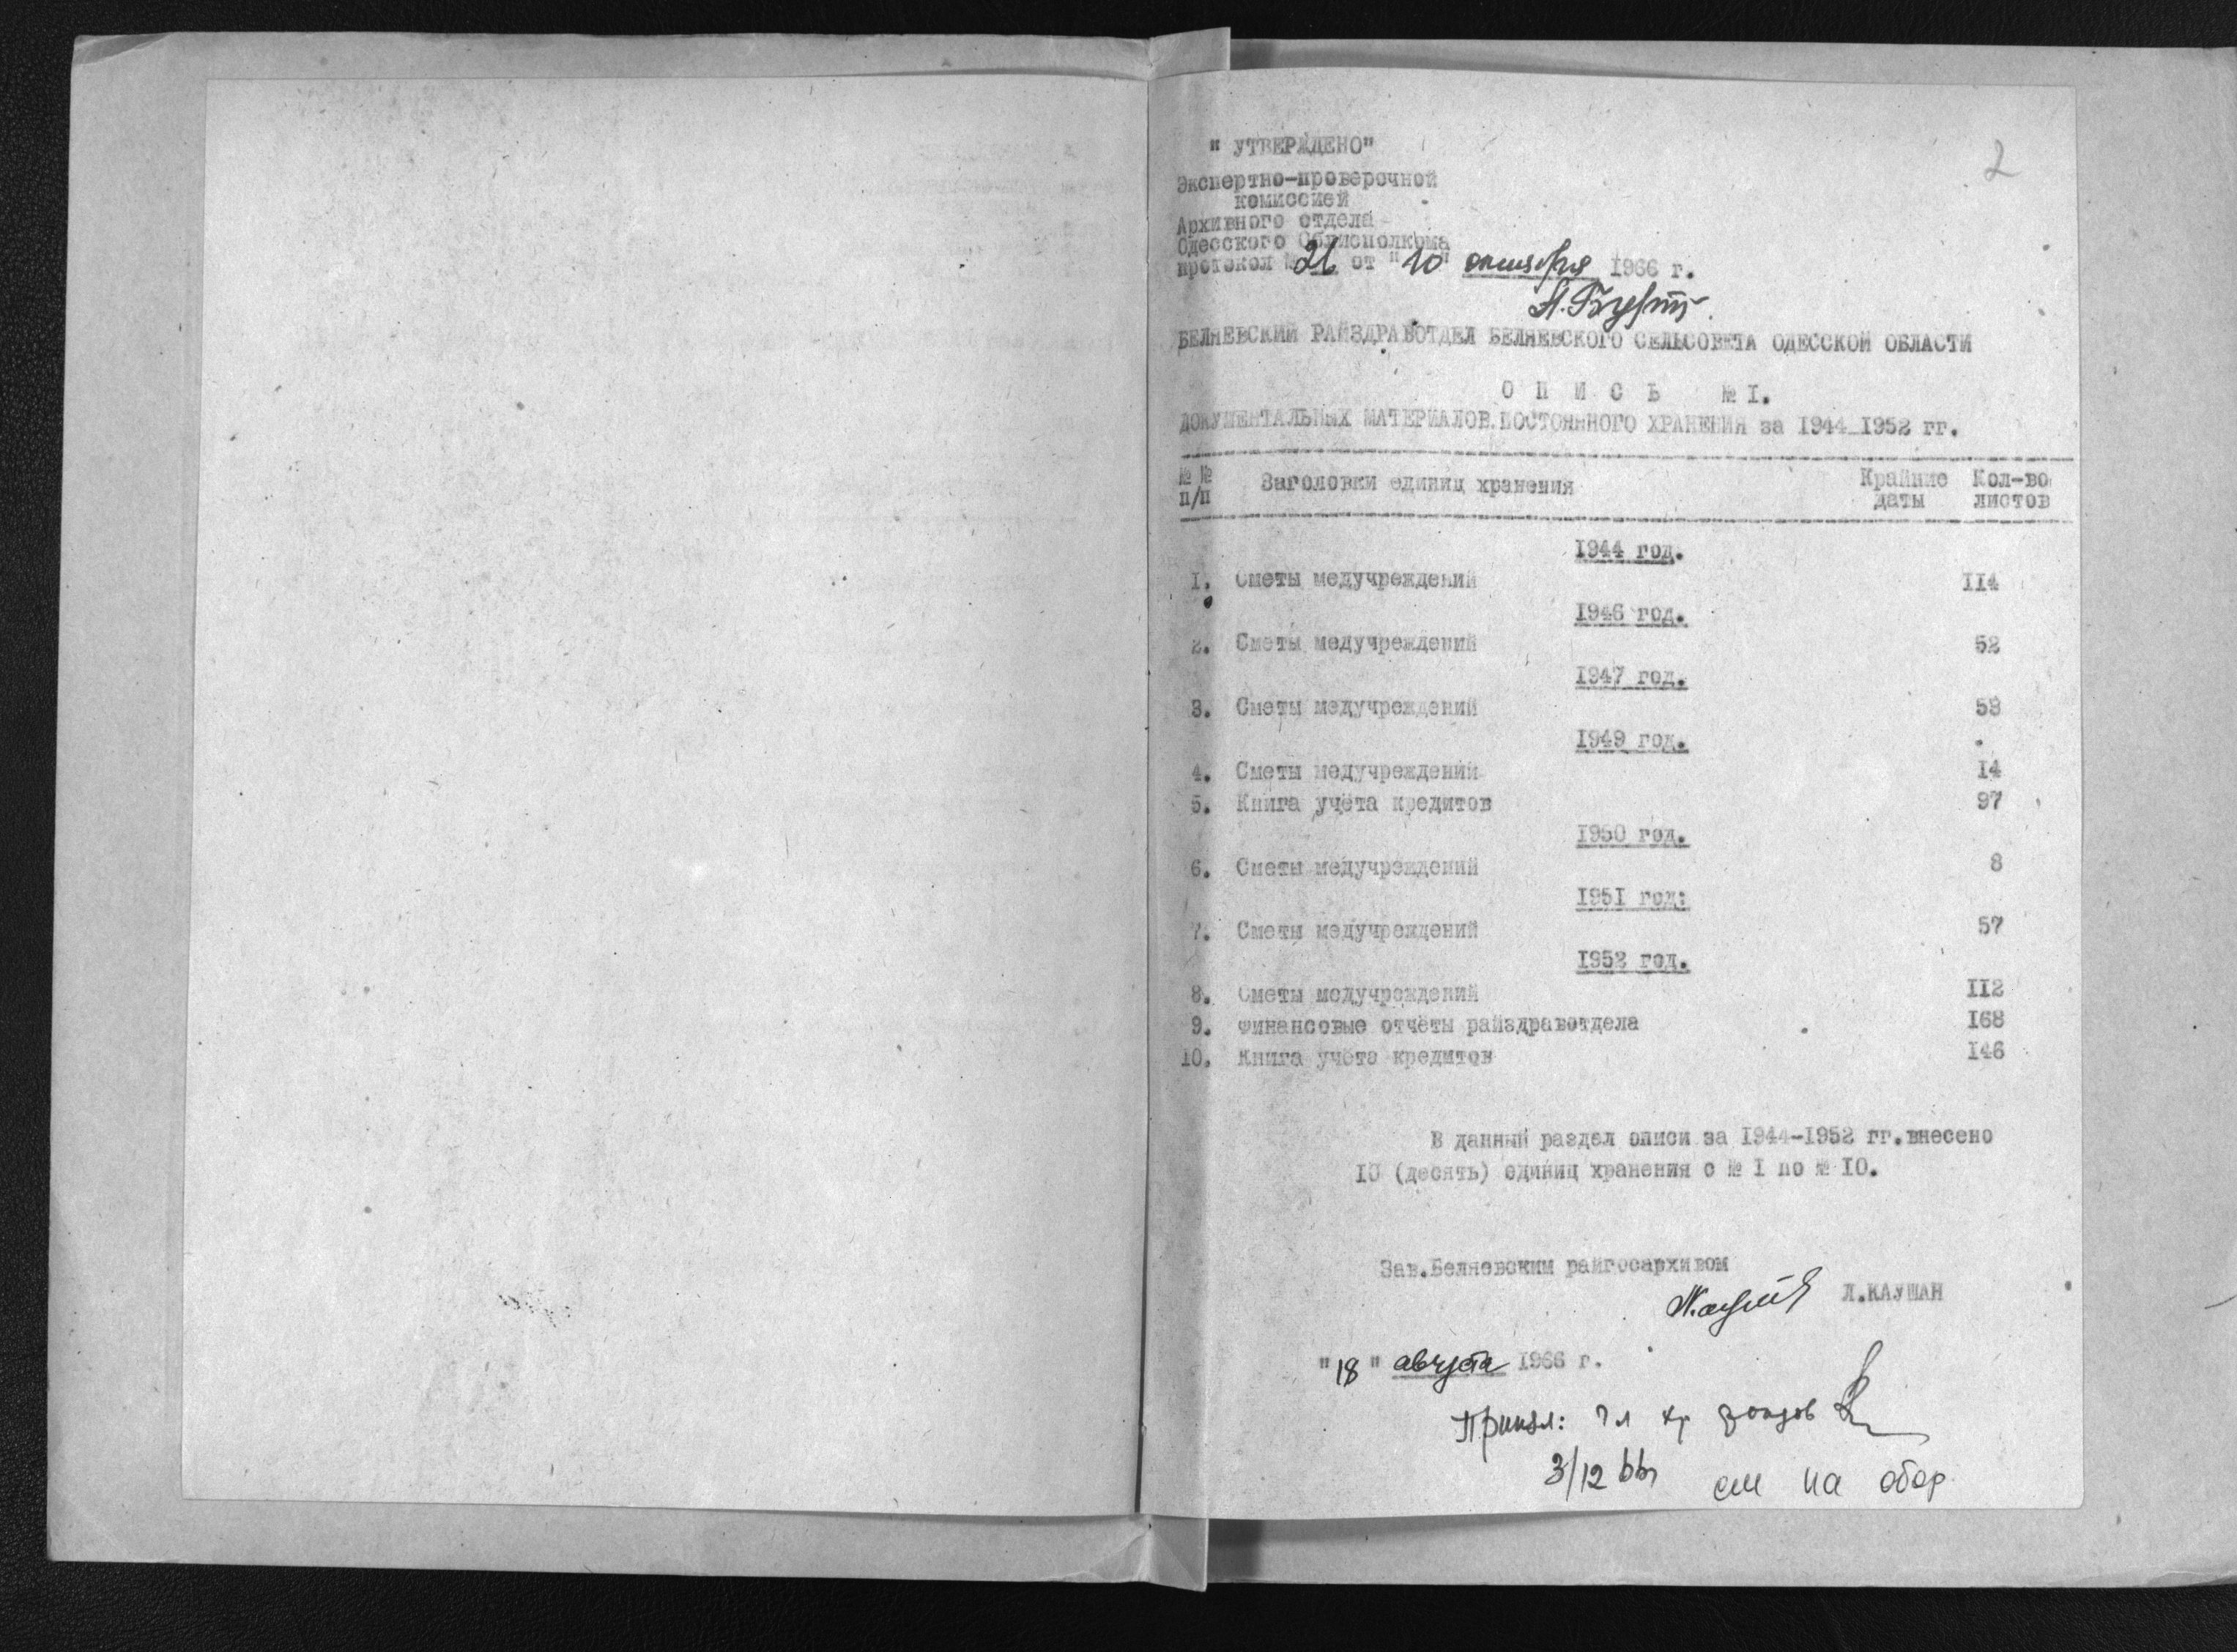 2
" УТВЕРЖДЕНО"
Экспертно-проверочной
комиссией
Архивного отдела
Одесского Облисполкома
протокол № 26 от "10" октября 1966 г.
БЕЛЯЕВСКИЙ РАЙЗДРАВОТДЕЛ БЕЛЯЕВСКОГО СЕЛЬСОВЕТА ОДЕССКОЙ ОБЛАСТИ
О П И С Ь № I.
ДОКУМЕНТАЛЬНЫХ МАТЕРИАЛОВ ПОСТОЯННОГО ХРАНЕНИЯ за 1944-1952 гг.
№ № Заголовки единиц хранения Крайние Кол-во
п/п даты листов
1944 год.
I. Сметы медучреждений II4
1946 год.
2. Сметы медучреждений 52
1947 год.
3. Сметы медучреждений 53
1949 год.
4. Сметы медучреждений I4
5. Книга учёта кредитов 97
1950 год.
6. Сметы медучреждений 8
I95I год:
7. Сметы медучреждений 57
I952 год.
8. Сметы медучреждений II2
9. Финансовые отчёты райздравотдела I68
10. Книга учёта кредитов I46
В данный раздел описи за 1944-1952 гг.внесено
IO (десять) единиц хранения с № I по № IO.
Зав.Беляевским райгосархивом
Л.КАУШАН
"18" августа 1966 г.
фондов
3/12 66г см на обор.